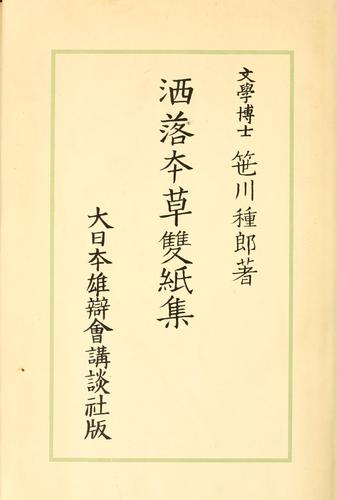 文學博士 笹川種郎著
洒落本草雙紙集
大日本雄辯會講談社版